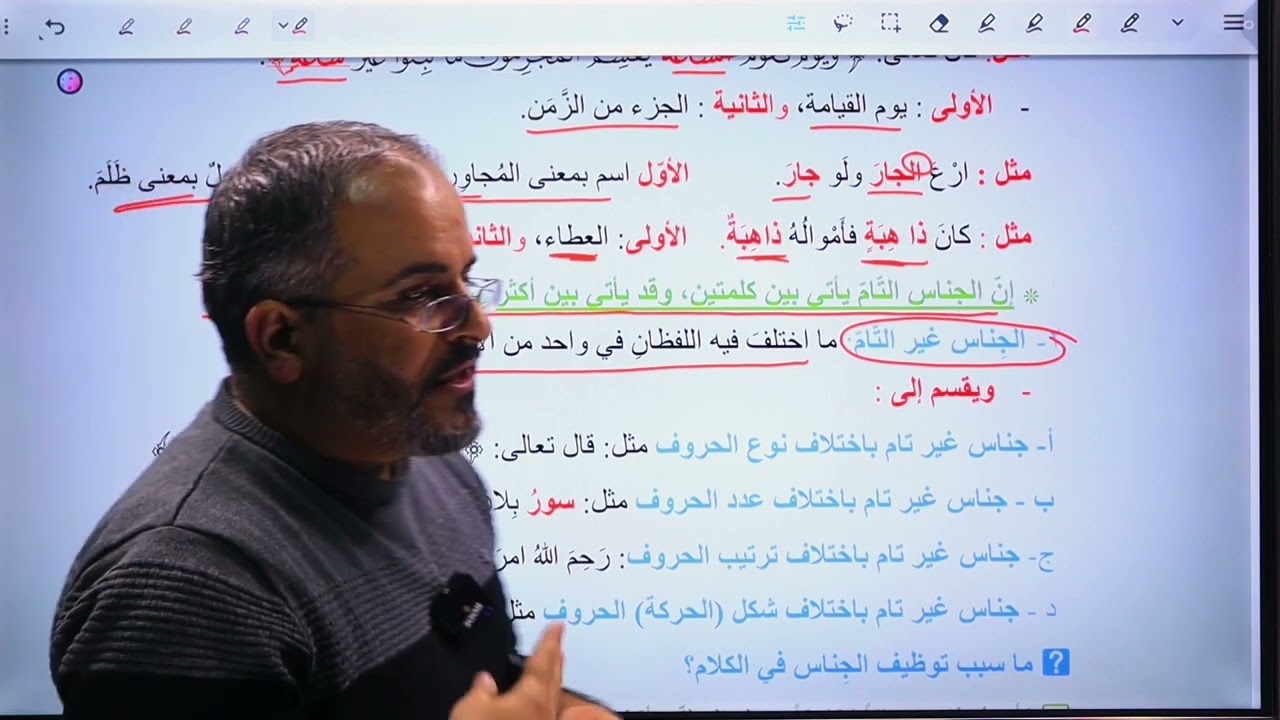 - الأولى : يوم القيامة، والثانية : الجزء من الزَّمَن.
مثل : ارْعَ الجارَ ولَو جارَ. الأوّل اسم بمعنى المُجاوِر بمعنى ظَلَمَ.
مثل : كانَ ذا هِبَةٍ فأَمْوالُهُ ذاهِبَةٌ. الأولى: العطاء،
إنّ الجِناس التَّامَ يأتي بين كلمتين، وقد يأتي بين أكثر
- الجِناس غير التَّامَ: ما اختلفَ فيه اللفظانِ في واحد من
- ويقسم إلى :
أ- جناس غير تام باختلاف نوع الحروف مثل: قال تعالى: ﴿
ب - جناس غير تام باختلاف عدد الحروف مثل: سورُ
ج- جناس غير تام باختلاف ترتيب الحروف: رَحِمَ اللهُ
د - جناس غير تام باختلاف شكل (الحركة) الحروف
? ما سبب توظيف الجِناس في الكلام؟